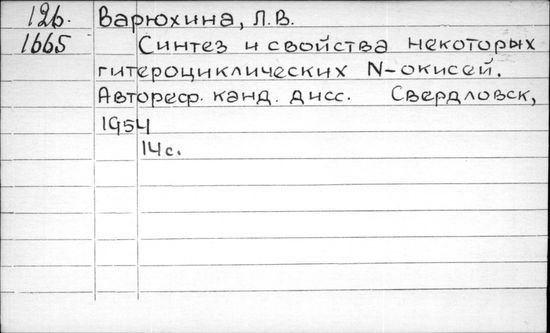 126. Варюхина, Л.В.
1665 Синтез и свойства некоторых
гитероциклических N-окисей.
Автореф. канд. дисс. Свердловск,
1954
14с.